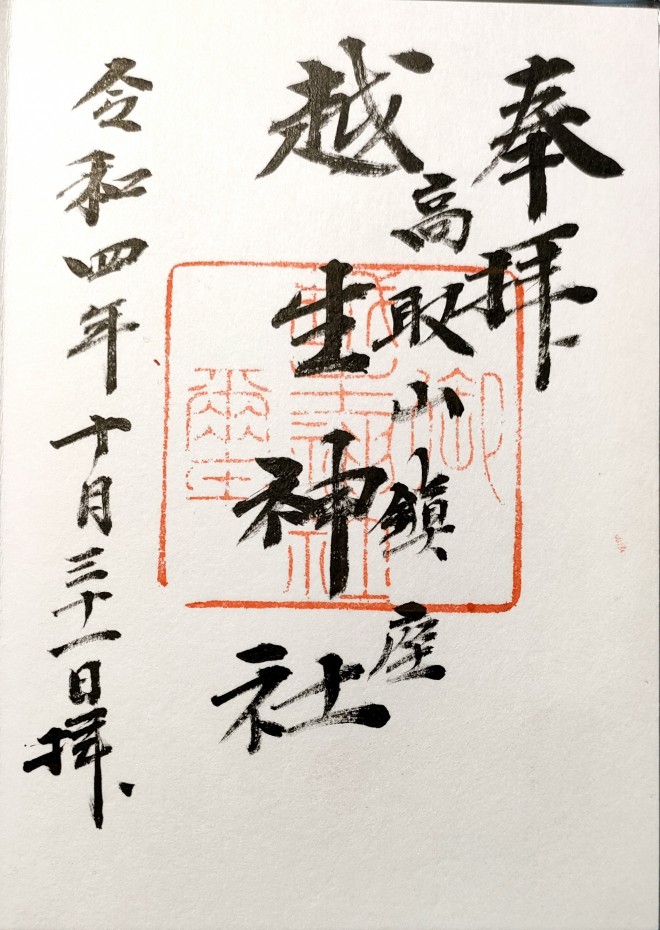 奉拝
高取山鎮座
越生神社
令和四年十月三十一日拝